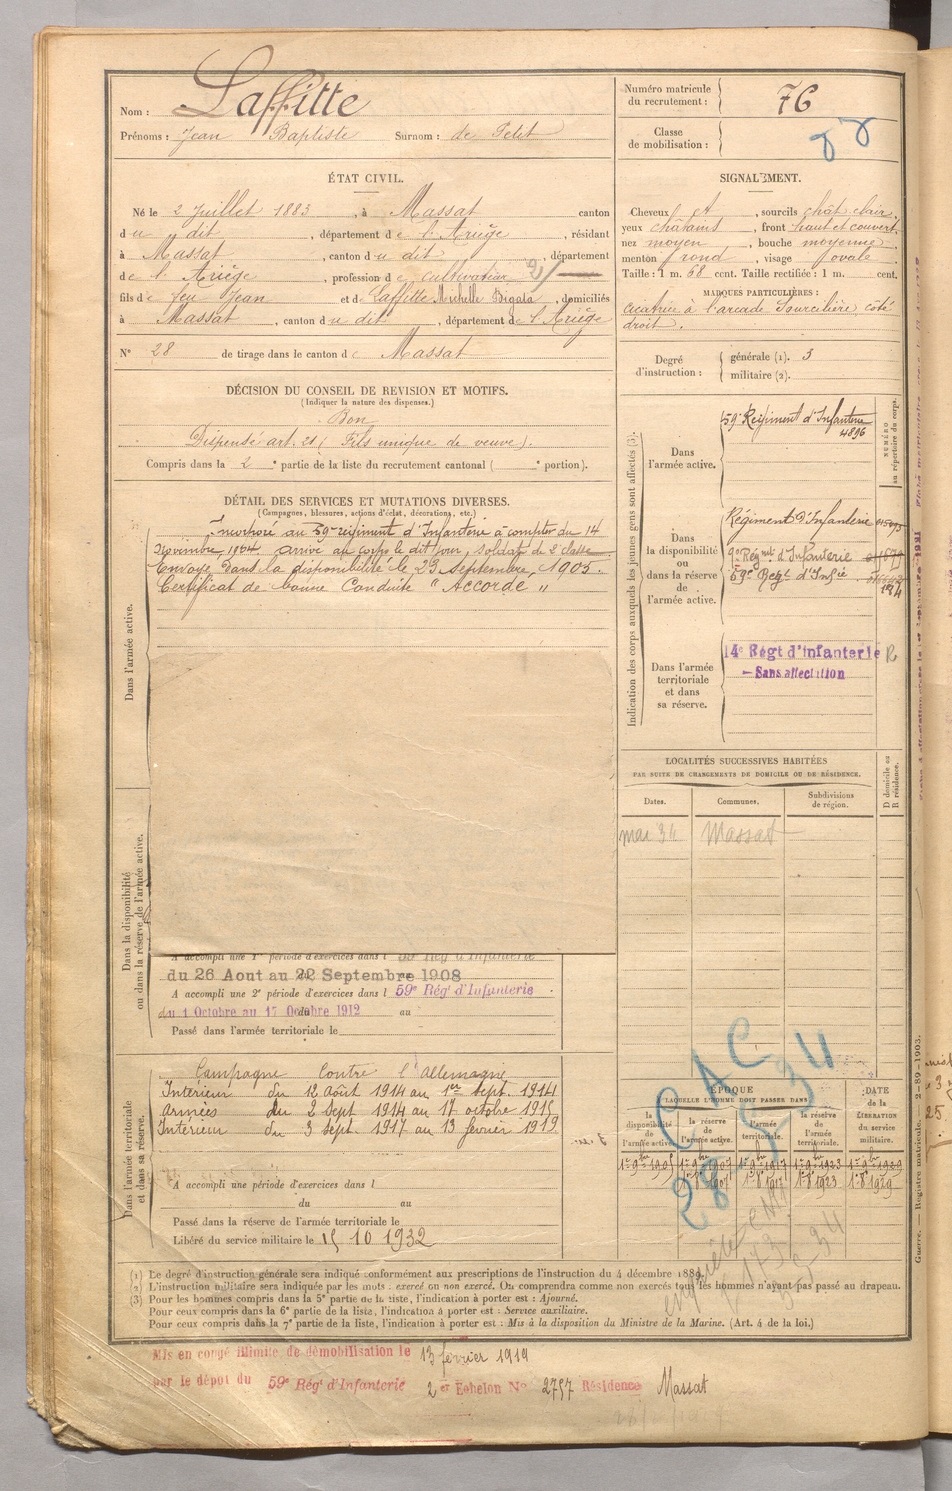 Nom : Laffitte
Prénoms : Jean Baptiste Surnom : de Petit
Numéro matricule du recrutement : 76
Classe de mobilisation :
ÉTAT CIVIL.
Né le 2 Juillet 1883, à Massat canton
du dit, département de l'Ariège, résidant
à Massat, canton du dit, département
de l'Ariège, profession de cultivateur 2/
fils de feu Jean et de Laffitte Michelle Bigata, domiciliés
à Massat, canton du dit, département de l'Ariège
N° 28 de tirage dans le canton de Massat
SIGNALEMENT.
Cheveux et, sourcils chât clair,
yeux châtains, front haut et couvert,
nez moyen, bouche moyenne,
menton rond, visage ovale.
Taille : 1 m. 68 cent. Taille rectifiée : 1 m. cent.
MARQUES PARTICULIÈRES :
cicatrice à l'arcade Sourcilière, côté
droit.
Degré d'instruction : générale (1). 3
militaire (2).
DÉCISION DU CONSEIL DE REVISION ET MOTIFS.
(Indiquer la nature des dispenses.)
Bon
Dispensé art. 21 (Fils unique de veuve).
Compris dans la 2e partie de la liste du recrutement cantonal ( e portion).
DÉTAIL DES SERVICES ET MUTATIONS DIVERSES.
(Campagnes, blessures, actions d'éclat, décorations, etc.)
Incorporé au 59e régiment d'Infanterie à compter du 14
Novembre 1904. arrivé au corps le dit jour, soldat de 2e classe
Envoyé dans la disponibilité le 23 septembre 1905.
Certificat de bonne Conduite " Accordé "
Dans l'armée active.
Dans la disponibilité
ou dans la réserve de l'armée active.
A accompli une 1e période d'exercices dans l 59e Rég d'Infanterie
du 26 Aout au 22 Septembre 1908
A accompli une 2e période d'exercices dans l 59e Régt d'Infanterie
du 1 Octobre au 17 Octobre 1912 au
Passé dans l'armée territoriale le
Dans l'armée territoriale
et dans sa réserve.
Campagne Contre l'Allemagne
Intérieur du 12 Août 1914 au 1er Sept. 1914
Armées du 2 Sept 1914 au 17 octobre 1915
Intérieur du 3 Sept. 1917 au 13 fevrier 1919
A accompli une période d'exercices dans l
du au
Passé dans la réserve de l'armée territoriale le
Libéré du service militaire le 15 10 1932
Indication des corps auxquels les jeunes gens sont affectés (3).
NUMÉRO au répertoire du corps.
Dans l'armée active.
59e Régiment d'Infanterie
4896
Dans la disponibilité ou dans la réserve de l'armée active.
Régiment d'Infanterie
9e Régmt d'Infanterie
59e Régt d'Infie
Dans l'armée territoriale et dans sa réserve.
14e Régt d'infanterie R
— Sans affectation
LOCALITÉS SUCCESSIVES HABITÉES
PAR SUITE DE CHANGEMENTS DE DOMICILE OU DE RÉSIDENCE.
Dates. Communes. Subdivisions de région. D domicile ou R résidence.
mai 34 Massat
CAC
28 5 34
ÉPOQUE
À LAQUELLE L'HOMME DOIT PASSER DANS
la disponibilité de l'armée active.
la réserve de l'armée active.
l'armée territoriale.
la réserve de l'armée territoriale.
DATE de la LIBÉRATION du service militaire.
1er 9bre 1905 1er 9bre 1907 1er 9bre 1917 1er 9bre 1923 1er 9bre 1929
1er 8 1907 1er 8 1917 1er 8 1923 1er 8 1929
(1) Le degré d'instruction générale sera indiqué conformément aux prescriptions de l'instruction du 4 décembre 1889.
(2) L'instruction militaire sera indiquée par les mots : exercé ou non exercé. On comprendra comme non exercés tous les hommes n'ayant pas passé au drapeau.
(3) Pour les hommes compris dans la 5e partie de la liste, l'indication à porter est : Ajourné.
Pour ceux compris dans la 6e partie de la liste, l'indication à porter est : Service auxiliaire.
Pour ceux compris dans la 7e partie de la liste, l'indication à porter est : Mis à la disposition du Ministre de la Marine. (Art. 4 de la loi.)
Guerre. — Registre matricule. 2-89-1903.
Mis en congé illimité de démobilisation le 13 fevrier 1919
par le dépôt du 59e Régt d'Infanterie 2er Echelon N° 2757 Résidence Massat